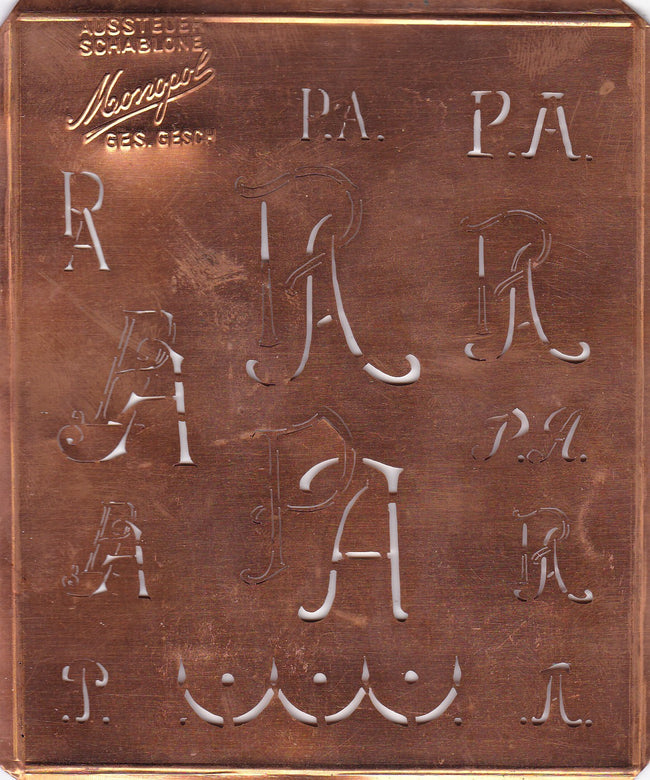 AUSSTEUER
SCHABLONE
Monopol
GES. GESCH
P.A. P.A.
PA PA PA
PA
P.A.
PA
PA PA
.P. .A.